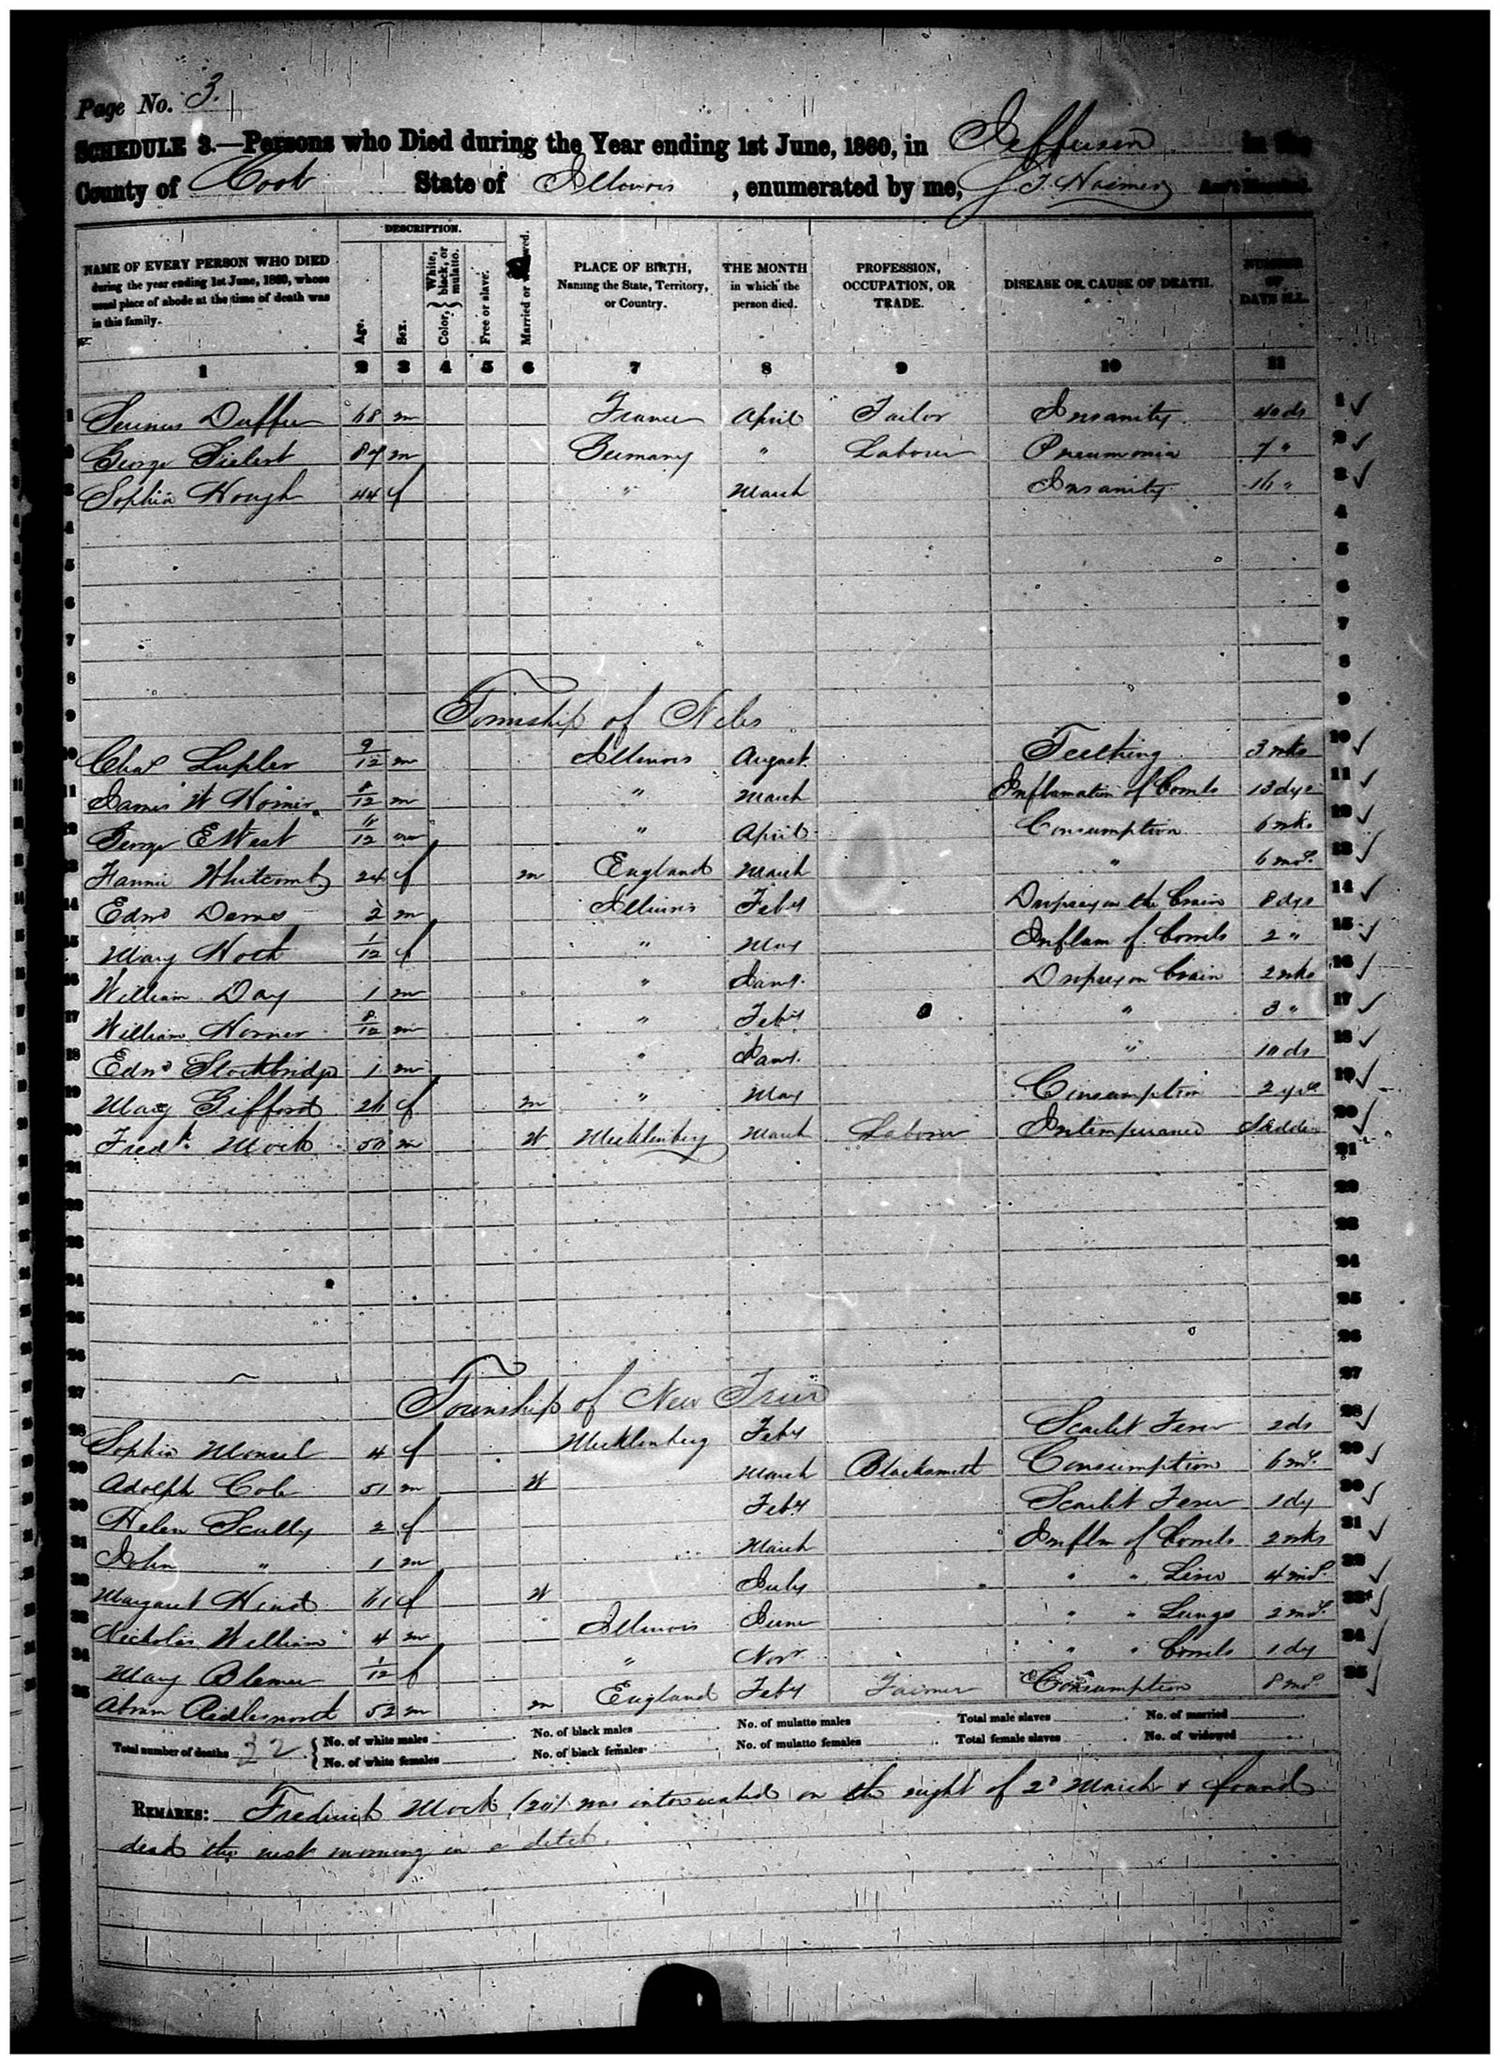 Page No. 3.
SCHEDULE 3.—Persons who Died during the Year ending 1st June, 1860, in Jefferson in the
County of Cook State of Illinois, enumerated by me,
DESCRIPTION.
NAME OF EVERY PERSON WHO DIED during the year ending 1st June, 1860, whose usual place of abode at the time of death was in this family.
Age. Sex. Color, { White, black, or mulatto. Free or slave. Married or widowed.
PLACE OF BIRTH, Naming the State, Territory, or Country.
THE MONTH in which the person died.
PROFESSION, OCCUPATION, OR TRADE.
DISEASE OR CAUSE OF DEATH.
NUMBER OF DAYS ILL.
1 2 3 4 5 6 7 8 9 10 11
1 68 m France April Tailor Insanity 40 ds 1
2 George Sielert 87 m Germany " Labourer Pneumonia 7 " 2
3 Sophia Hough 44 f " March Insanity 3
4 4
5 5
6 6
7 7
8 8
9 Township of Niles 9
10 Chas Lupler 9/12 m Illinois August Teething 3 wks 10
11 James W 8/12 m " March Inflamation of Bowels 13 dys 11
12 George E West 11/12 m " April Consumption 6 wks 12
13 Fannie Whitcomb 24 f m England March " 6 mos. 13
14 Edwd 2 m Illinois Feby Dropsy on the Brain 8 dys 14
15 Mary Hoch 1/12 f " May Inflam of Bowels 2 " 15
16 William Day 1 m " Jany. Dropsy on Brain 2 wks 16
17 William Horner 8/12 m " Feby " 3 " 17
18 Edwd Stockbridge 1 m " Jany. " 10 ds 18
19 Mary Gifford 26 f m " May Consumption 2 yrs 19
20 Fredk. Mock 50 m W Mecklenberg March Labourer Intemperance Sudden 20
21 21
22 22
23 23
24 24
25 25
26 26
27 Township of New Trier 27
28 Sophia Monsel 4 f Mecklenberg Feby Scarlet Fever 2 ds 28
29 Adolph Cole 51 m W March Blacksmith Consumption 6 ms. 29
30 Helen Scully 2 f Feby Scarlet Fever 1 dy 30
31 John " 1 m March Inflm of Bowels 2 wks 31
32 Margaret 61 f W July " " Liver 4 ms. 32
33 Nicholas William 4 m Illinois June " " Lungs 2 ms. 33
34 Mary 1/12 f " Novr " " Bowels 1 dy 34
35 Abram 52 m m England Feby Farmer Consumption 8 ms. 35
Total number of deaths 22. { No. of white males No. of black males No. of mulatto males Total male slaves No. of married
No. of white females No. of black females No. of mulatto females Total female slaves No. of widowed
REMARKS: Frederick Mock (20) was intoxicated on the night of 2d March & found
dead the next morning in a ditch.